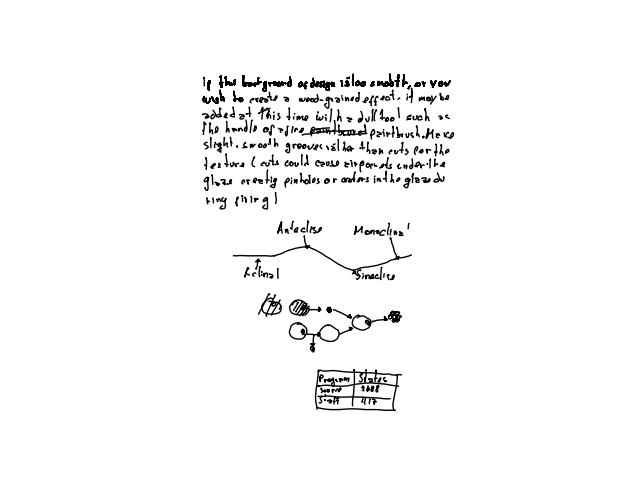 If the background of design is too smooth, or you
wish to create a wood-grained effect, it may be
added at this time with a dull tool such as
the handle of a fine paintbrush. Make
slight, smooth grooves rather than cuts for the
texture (cuts could cause air pockets under the
glaze creating pinholes or craters in the glaze du
ring firing)
Anteclise
Monoclinal
Aclinal
Sineclise
Program States
Source 2688
Staff 417